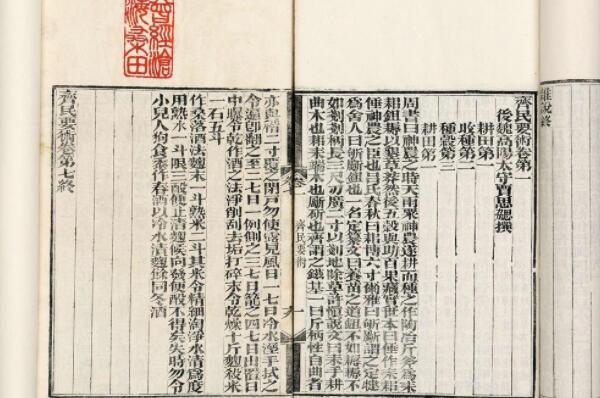 雜說終
齊民要術卷第一
後魏高陽太守賈思勰撰
耕田第一
收種第二
種穀第三
耕田第一
周書曰神農之時天雨粟神農遂耕而種之作陶冶斤斧為耒
耜鉏耨以墾草莽然後五穀與助百果藏實世本曰倕作耒耜
倕神農之臣也呂氏春秋曰耜博六寸爾雅曰斪斸謂之定犍
為舍人曰斪斸鉏也一名定纂文曰養苗之道鉏不如耨耨不
如剗剗柄長三尺刃廣二寸以剗地除草許慎說文曰耒手耕
曲木也耜耒端木也斸斫也齊謂之鎡基一曰斤柄性自曲者
曾經滄海桑田
卷七
齊民要術
九
二寸閉戶勿使露見風日一七日冷水溼手拭之
令遍卽翻之至二七日一例側之三七日籠之四七日出置日
中曝令乾作酒之法淨削刮去垢打碎末令乾燥十斤麴殺米
一石五斗
作桑落酒法麴末一斗熟米二斗其米令精細淘淨水清為度
用熟水一斗限三酘便止漬麴候向發便酘不得失時勿令
小兒人狗食黍作春酒以冷水漬麴餘同冬酒
齊民要術卷第七終